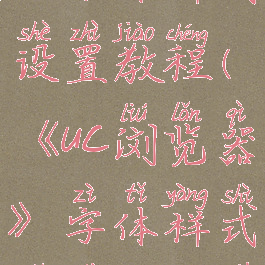 shè zhì jiào chéng
设置教程(
liú lǎn qì
《uc浏览器
zì tǐ yàng shì
》字体样式